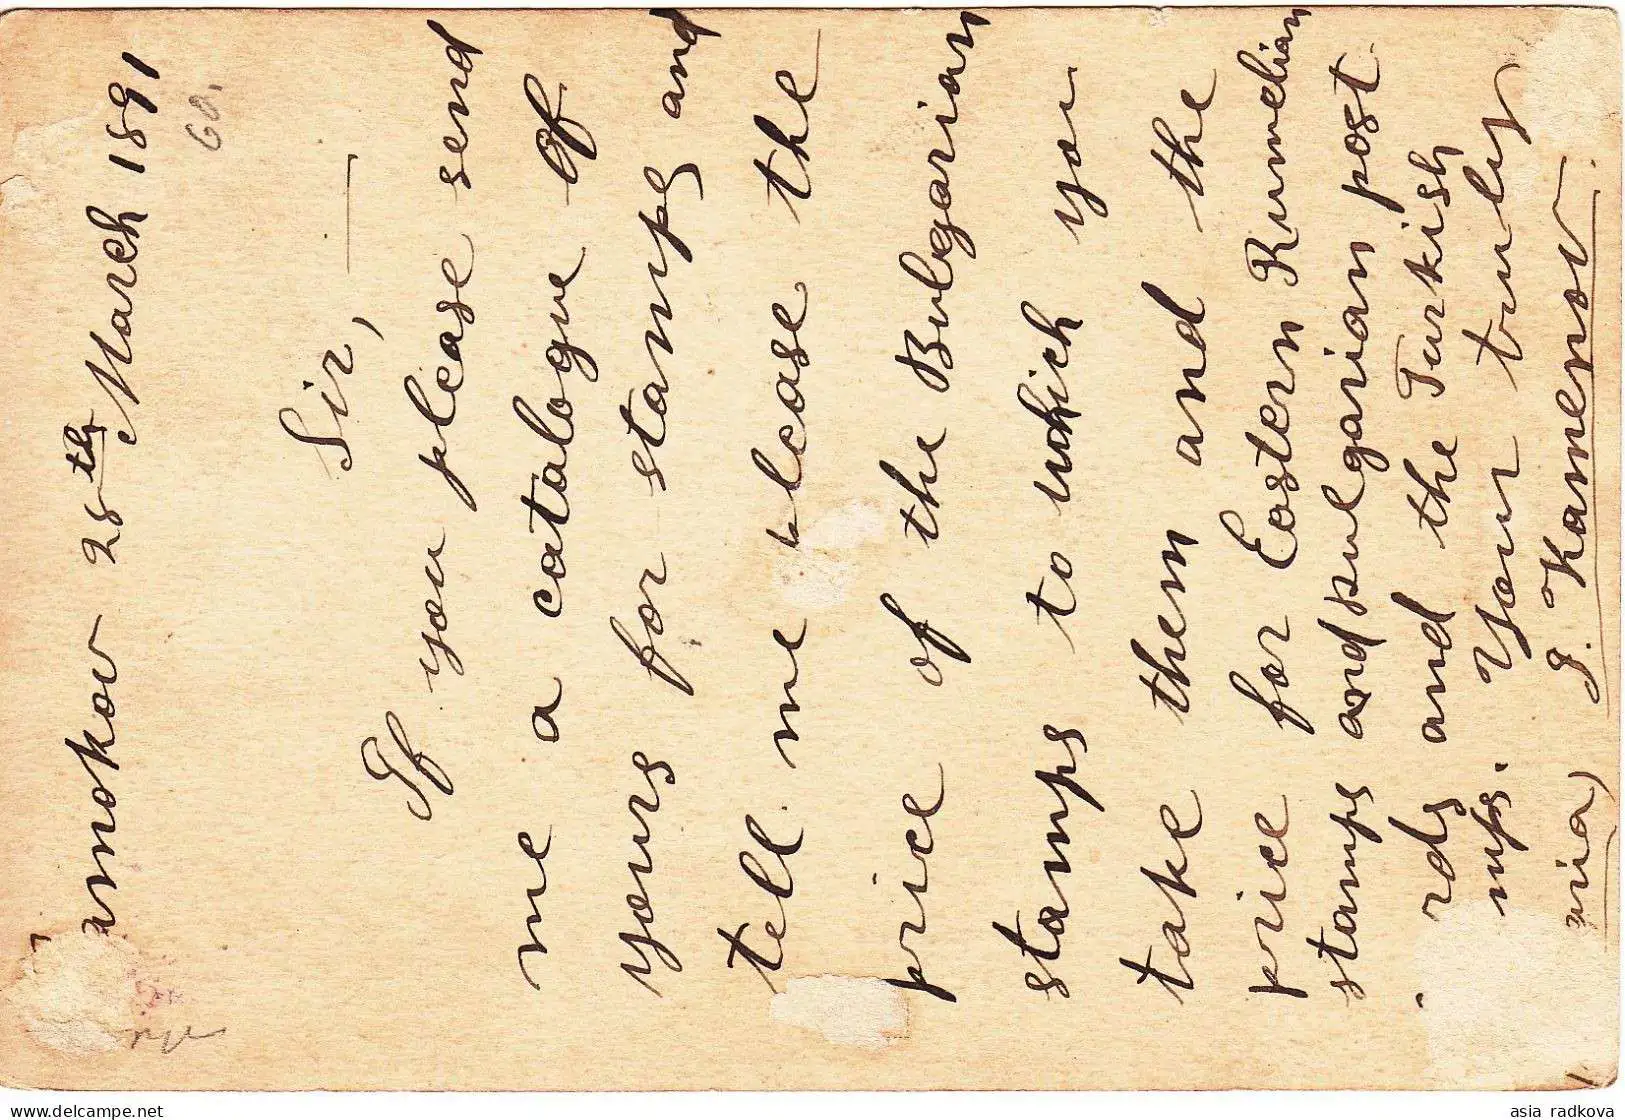 amokov 28th March 1891
60.
Sir,
If you please send
me a catalogue of
yours for stamps and
tell me please the
price of the Bulgarian
stamps to which you
take them and the
price for Eastern Rumelian
stamps and pulgarian post
rds and the Turkish
mps. Your truly
ria) J. Kamenov.
delcampe.net
asia radkova